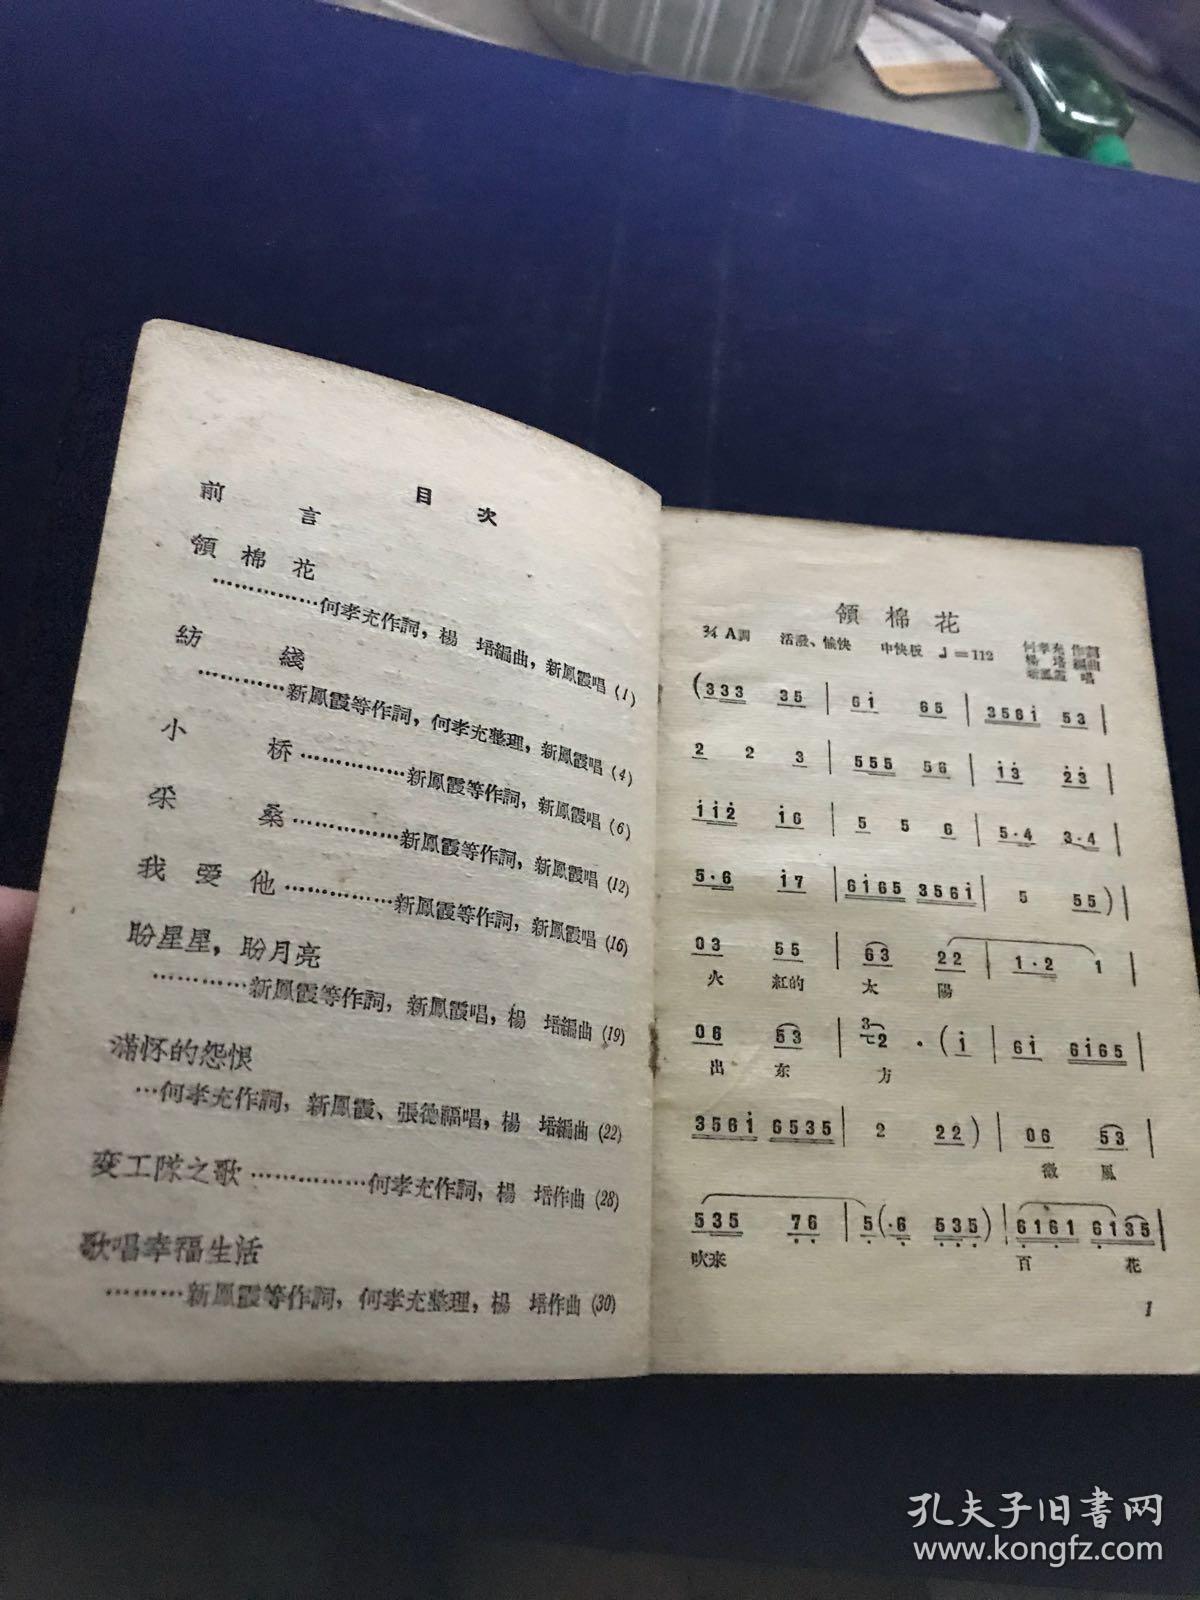 目次
前言
領棉花
……………何孝充作詞，楊　培編曲，新鳳霞唱 (1)
紡綫
……………新鳳霞等作詞，何孝充整理，新鳳霞唱 (4)
小桥……………新鳳霞等作詞，新鳳霞唱 (6)
采桑……………新鳳霞等作詞，新鳳霞唱 (12)
我爱他……………新鳳霞等作詞，新鳳霞唱 (16)
盼星星，盼月亮
…………新鳳霞等作詞，新鳳霞唱，楊　培編曲 (19)
滿怀的怨恨
…何孝充作詞，新鳳霞、張德福唱，楊　培編曲 (22)
变工隊之歌……………何孝充作詞，楊　培作曲 (28)
歌唱幸福生活
…………新鳳霞等作詞，何孝充整理，楊　培作曲 (30)
領棉花
2/4 A調 活潑、愉快 中快板 ♩=112
何孝充 作詞
楊培 編曲
新鳳霞 唱
(333 35 | 6i 65 | 356i 53 |
2 2 3 | 555 56 | i3 23 |
ii2 i6 | 5 5 6 | 5·4 3·4 |
5·6 i7 | 6i65 356i | 5 55) |
03 55 | 63 22 | 1·2 1 |
火 紅的 太 陽
06 53 | 2 · (i | 6i 6i65 |
出 东 方
356i 6535 | 2 22) | 06 53 |
微 風
535 76 | 5(·6 535) | 6161 6135 |
吹来 百 花
1
孔夫子旧書网
www.kongfz.com